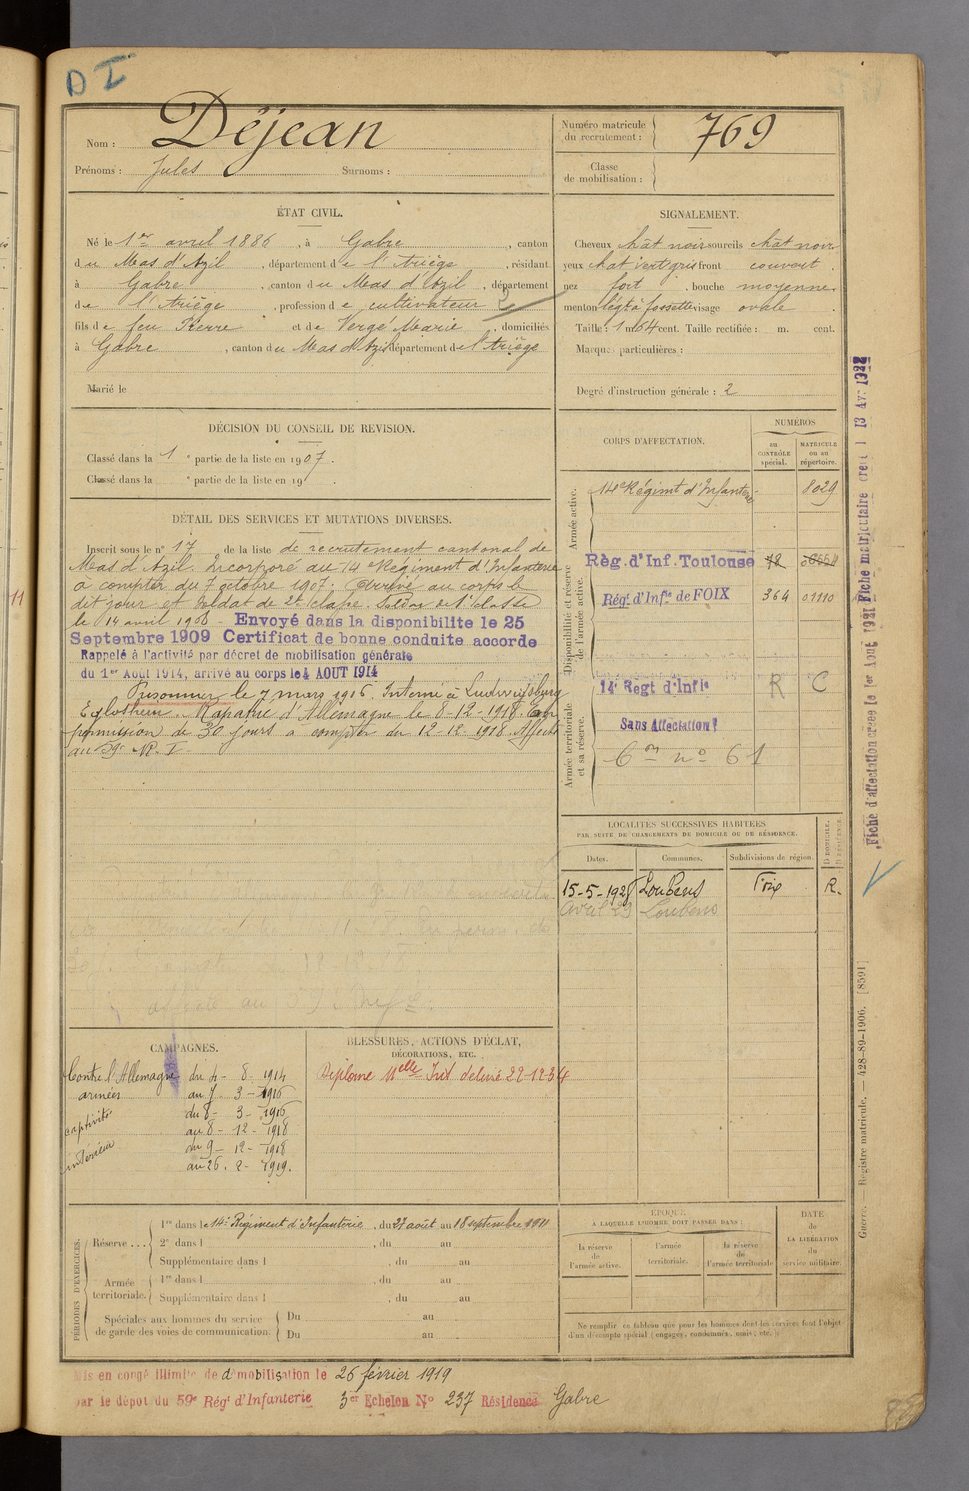 D I
Nom : Déjean
Prénoms : Jules Surnoms :
Numéro matricule du recrutement : 769
Classe de mobilisation :
ÉTAT CIVIL.
Né le 1er avril 1886, à Gabre, canton
du Mas d'Azil, département de l'Ariège, résidant
à Gabre, canton du Mas d'Azil, département
de l'Ariège, profession de cultivateur
fils de feu Pierre et de Vergé Marie, domiciliés
à Gabre, canton du Mas d'Azil, département de l'Ariège
Marié le
SIGNALEMENT.
Cheveux chât noir sourcils chât noir
yeux chat vert gris front couvert.
nez fort, bouche moyenne
menton légt à fossette visage ovale.
Taille : 1 m 64 cent. Taille rectifiée : m. cent.
Marques particulières :
Degré d'instruction générale : 2
DÉCISION DU CONSEIL DE REVISION.
Classé dans la 1e partie de la liste en 1907.
Classé dans la e partie de la liste en 19
DÉTAIL DES SERVICES ET MUTATIONS DIVERSES.
Inscrit sous le n° 17 de la liste de recrutement cantonal de
Mas d'Azil. Incorporé au 14e Régiment d'Infanterie
à compter du 7 octobre 1907. Arrivé au corps le
dit jour et soldat de 2e classe. Soldat de 1e classe
le 14 avril 1908 - Envoyé dans la disponibilite le 25
Septembre 1909 Certificat de bonne conduite accorde
Rappelé à l'activité par décret de mobilisation générale
du 1er Aout 1914, arrivé au corps le 4 AOUT 1914
Prisonnier le 7 mars 1916. Interné à Ludwigsburg
Eglosheim. Rapatrié d'Allemagne le 8-12-1918. En
permission de 30 jours à compter du 12-12-1918. Affecté
au 59e R. I.
affecté au 59e
CORPS D'AFFECTATION.
NUMÉROS
au CONTRÔLE spécial.
MATRICULE ou au répertoire.
Armée active.
14e Régimt d'Infanterie 8029
Disponibilité et réserve de l'armée active.
Rég. d'Inf. Toulouse
Régt d'Infie de FOIX 364 01110
Armée territoriale et sa réserve.
14e Regt d'Infie R C
Sans Affectation
6on n° 61
LOCALITÉS SUCCESSIVES HABITÉES
PAR SUITE DE CHANGEMENTS DE DOMICILE OU DE RÉSIDENCE.
Dates. Communes. Subdivisions de région. D DOMICILE. R RÉSIDENCE.
15-5-1928 Loubens Foix R.
Avril 29 Loubens
CAMPAGNES.
Contre l'Allemagne du 4- 8- 1914
armées au 7- 3- 1916
captivité du 8- 3- 1916
au 8- 12- 1918
intérieur du 9- 12- 1918
au 26. 2- 1919.
BLESSURES, ACTIONS D'ÉCLAT,
DÉCORATIONS, ETC.
Diplome Melle Int délivré 22-12-34
PÉRIODES D'EXERCICES.
Réserve ...
1re dans le 14e Régiment d'Infanterie, du 27 août au 18 septembre 1911
2e dans l , du au
Supplémentaire dans l , du au
Armée territoriale.
1re dans l , du au
Supplémentaire dans l , du au
Spéciales aux hommes du service de garde des voies de communication.
Du au
Du au
ÉPOQUE
À LAQUELLE L'HOMME DOIT PASSER DANS :
la réserve de l'armée active.
l'armée territoriale.
la réserve de l'armée territoriale.
DATE de LA LIBÉRATION du service militaire.
Ne remplir ce tableau que pour les hommes dont les services font l'objet
d'un décompte spécial (engagés, commissionnés, omis, etc.)
Mis en congé illimité de démobilisation le 26 février 1919
par le dépot du 59e Régt d'Infanterie 3er Echelon No 237 Résidence Gabre
Fiche d'affectation créée le 1er Aout 1921 Fiche matriculaire créée l 13 Avr 1922
Guerre. — Registre matricule. — 428-89-1906. [8591]
11